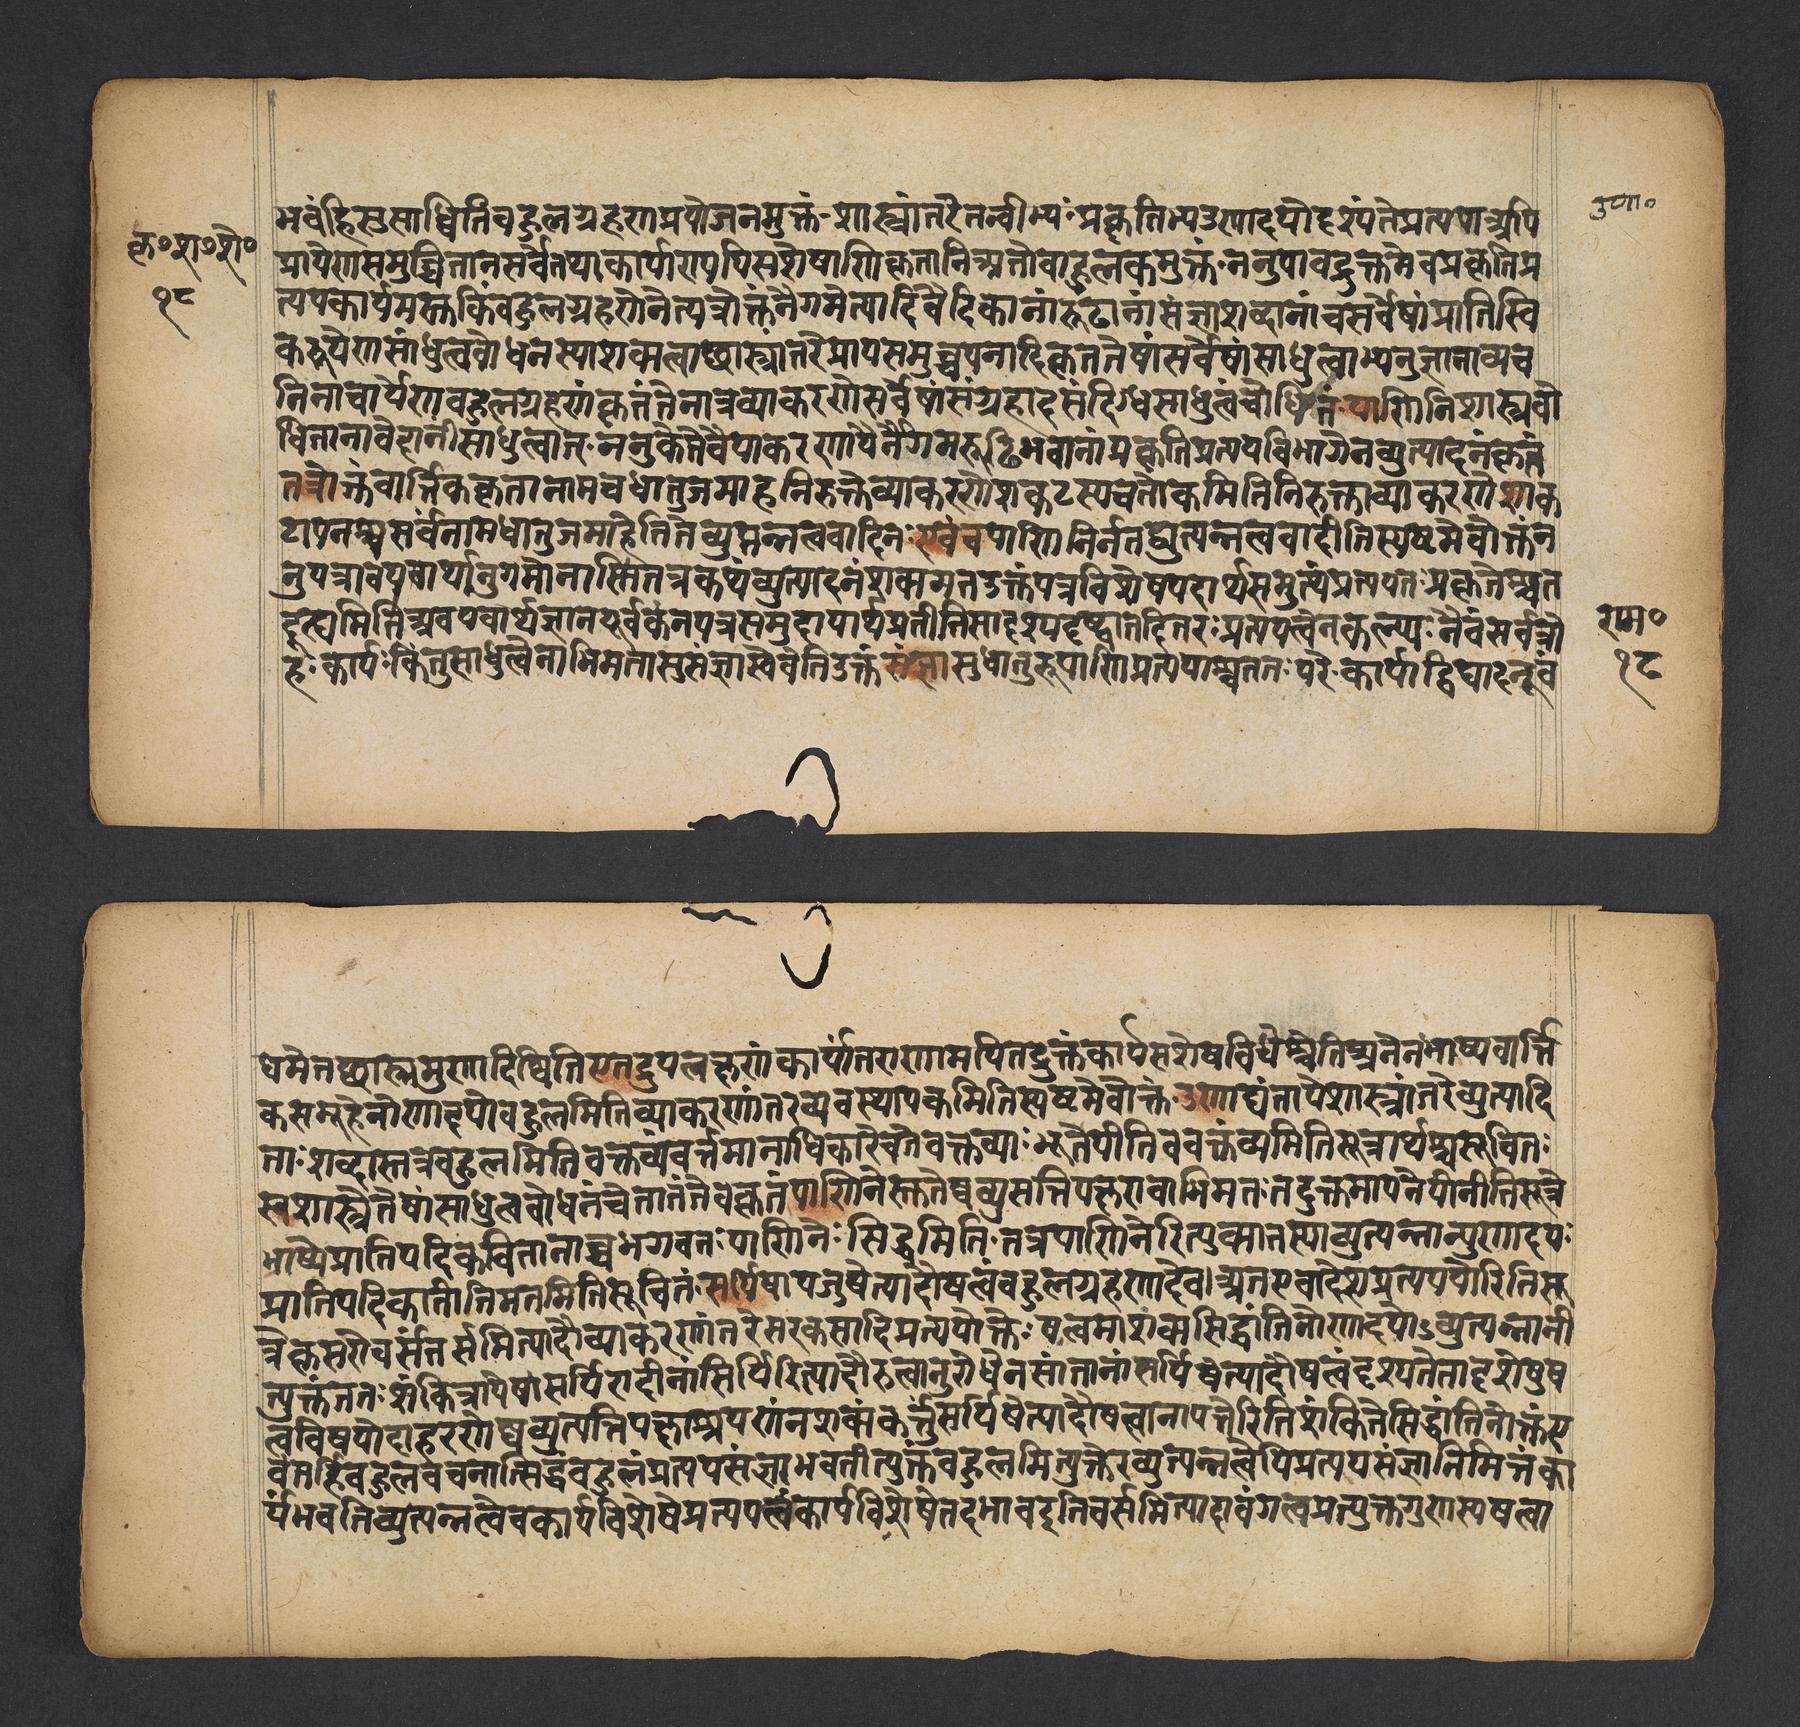 भवंहिसुसाध्वितिवहुलग्रहणप्रयोजनमुक्तं॰शास्त्रांतरेतन्वीभ्यः प्रकृतिभ्यउणादयोदृश्यंतेप्रत्ययाअपि
प्रायेणसमुच्चितानसर्वेतथाकार्याण्यपिसशेषाणिकृतानिअतोवाहुलकमुक्तं॰ननुयावदुक्तमेवप्रकृतिप्र
त्ययकार्यमस्तुकिंवहुलग्रहणेनेत्यत्रोक्तंनैगमेत्यादिवैदिकानांरूढानांसंज्ञाशब्दानांचसर्वेषांप्रातिस्वि
करूपेणसाधुत्ववोधनस्याशक्यत्वाछास्त्रांतरेप्रायसमुच्चयनादिकृततेषांसर्वेषांसाधुत्वाभ्यनुज्ञानाय
निनाचार्येणवहुलग्रहणंकृतंतेनात्रव्याकरणेसर्वेषांसंग्रहादसंदिग्धसाधुत्वं पाणिनिशास्त्रवो
धितानामेवेदानींसाधुत्वात्॰ननुकैमैवैयाकरणायैर्नैगमरूढिभवानांप्रकृतिप्रत्ययविभागेनव्युत्पादनंकृतं
तत्रोक्तंवार्त्तिककृतानामचधातुजमाहनिरुक्तेव्याकरणेशकटस्यचतोकमितिनिरुक्ताव्याकरणेशाक
टायनश्चसर्वनामधातुजमाहेतितेव्युत्पन्नत्ववादिनः एवंचपाणिनिर्नतद्व्युत्पन्नत्ववादीतिस्पष्टमेवोक्तंन
नुयत्रावयवार्थानुगमोनास्तितत्रकथंव्युत्पादनंशक्यमतउक्तंयन्नविशेषपदार्थसमुत्थंप्रत्ययतः प्रकृतेश्चत
दूह्यमितिअवयवार्थज्ञानपूर्वकंनयत्रसमुदायार्थप्रतीतिसादृश्यदृष्ट्वातदितरः प्रत्ययत्वेनकल्प्यः नैवंसर्वत्रो
हः कार्यः किंतुसाधुत्वेनाभिमतासुसंज्ञास्वेवेतिउक्तंसंज्ञासुधातुरूपाणिप्रत्ययाश्चततः परे॰कार्याद्विद्यादनूवं
उणा॰
१८
राम॰
१८
धमेतछास्त्रमुणादिष्वितिएतदुपलक्षणंकार्यांतराणामपितदुक्तंकार्यसशेषविधेश्चेतिअनेनभाष्यवार्त्ति
कसमूहेनोणादयोवहुलमितिव्याकरणांतरव्यवस्थापकमितिस्पष्टमेवोक्तं॰उणाद्यंतायेशास्त्रांतरेव्युत्पादि
ताः शब्दास्तत्रवहुलमितिवक्तव्यंवर्त्तमानाधिकारेचतेवक्तव्याः भूतेपीतिववक्तव्यमितिसूत्रार्थश्चसूचितः
स्वशास्त्रेतेषांसाधुत्ववोधनंचेतातंतेवेकृतंपाणिनेस्ततेष्वव्युत्पत्तिपक्षएवाभिमतः तदुक्तमायनेयीनीतिसूत्रे
भाष्येप्रातिपदिकविज्ञानाच्चभगवतः पाणिनेः सिद्धमिति॰तत्रपाणिनेरित्युक्त्वातस्याव्युत्पन्नान्युणादयः
प्रातिपदिकानीतिमतमितिसूचितं॰सर्पिषायजुषेत्यादौषत्वंवहुलग्रहणादेव।अतएवादेशप्रत्यययोरितिसू
त्रेकृसरेवर्सतर्समित्यादौव्याकरणांतरेसरकसादिप्रत्ययोक्तेः षत्वमाशंक्यसिद्धांतिनोणादयोऽव्युत्पन्नानी
त्युक्तंततः शंकित्रायेषांसर्पिरादीनांसिर्पिरित्यादौरुत्वानुरोधेनसांतानांसर्पिश्चेत्यादौषत्वंदृश्यतेतादृशेषुष
त्वविषयोदाहरणेष्वव्युत्पत्तिपक्षाश्रयणंनशक्यंकर्त्तुंसर्पिषेत्यादौषत्वानापत्तेरितिशंकितेसिद्धांतिनोक्तंए
वंतर्हिवहुलवचनात्सिद्धंवहुलंप्रत्ययसंज्ञाभवतीत्युक्तंवहुलमित्युक्तेरव्युत्पन्नत्वेपिप्रत्ययसंज्ञानिमित्तंका
र्यंभवतिव्युत्पन्नत्वेवकार्यविशेषेप्रत्ययत्वंकार्यविशेषेतदभावइतिवर्समित्यादावंगत्वप्रत्युक्तगुणस्यषत्वा